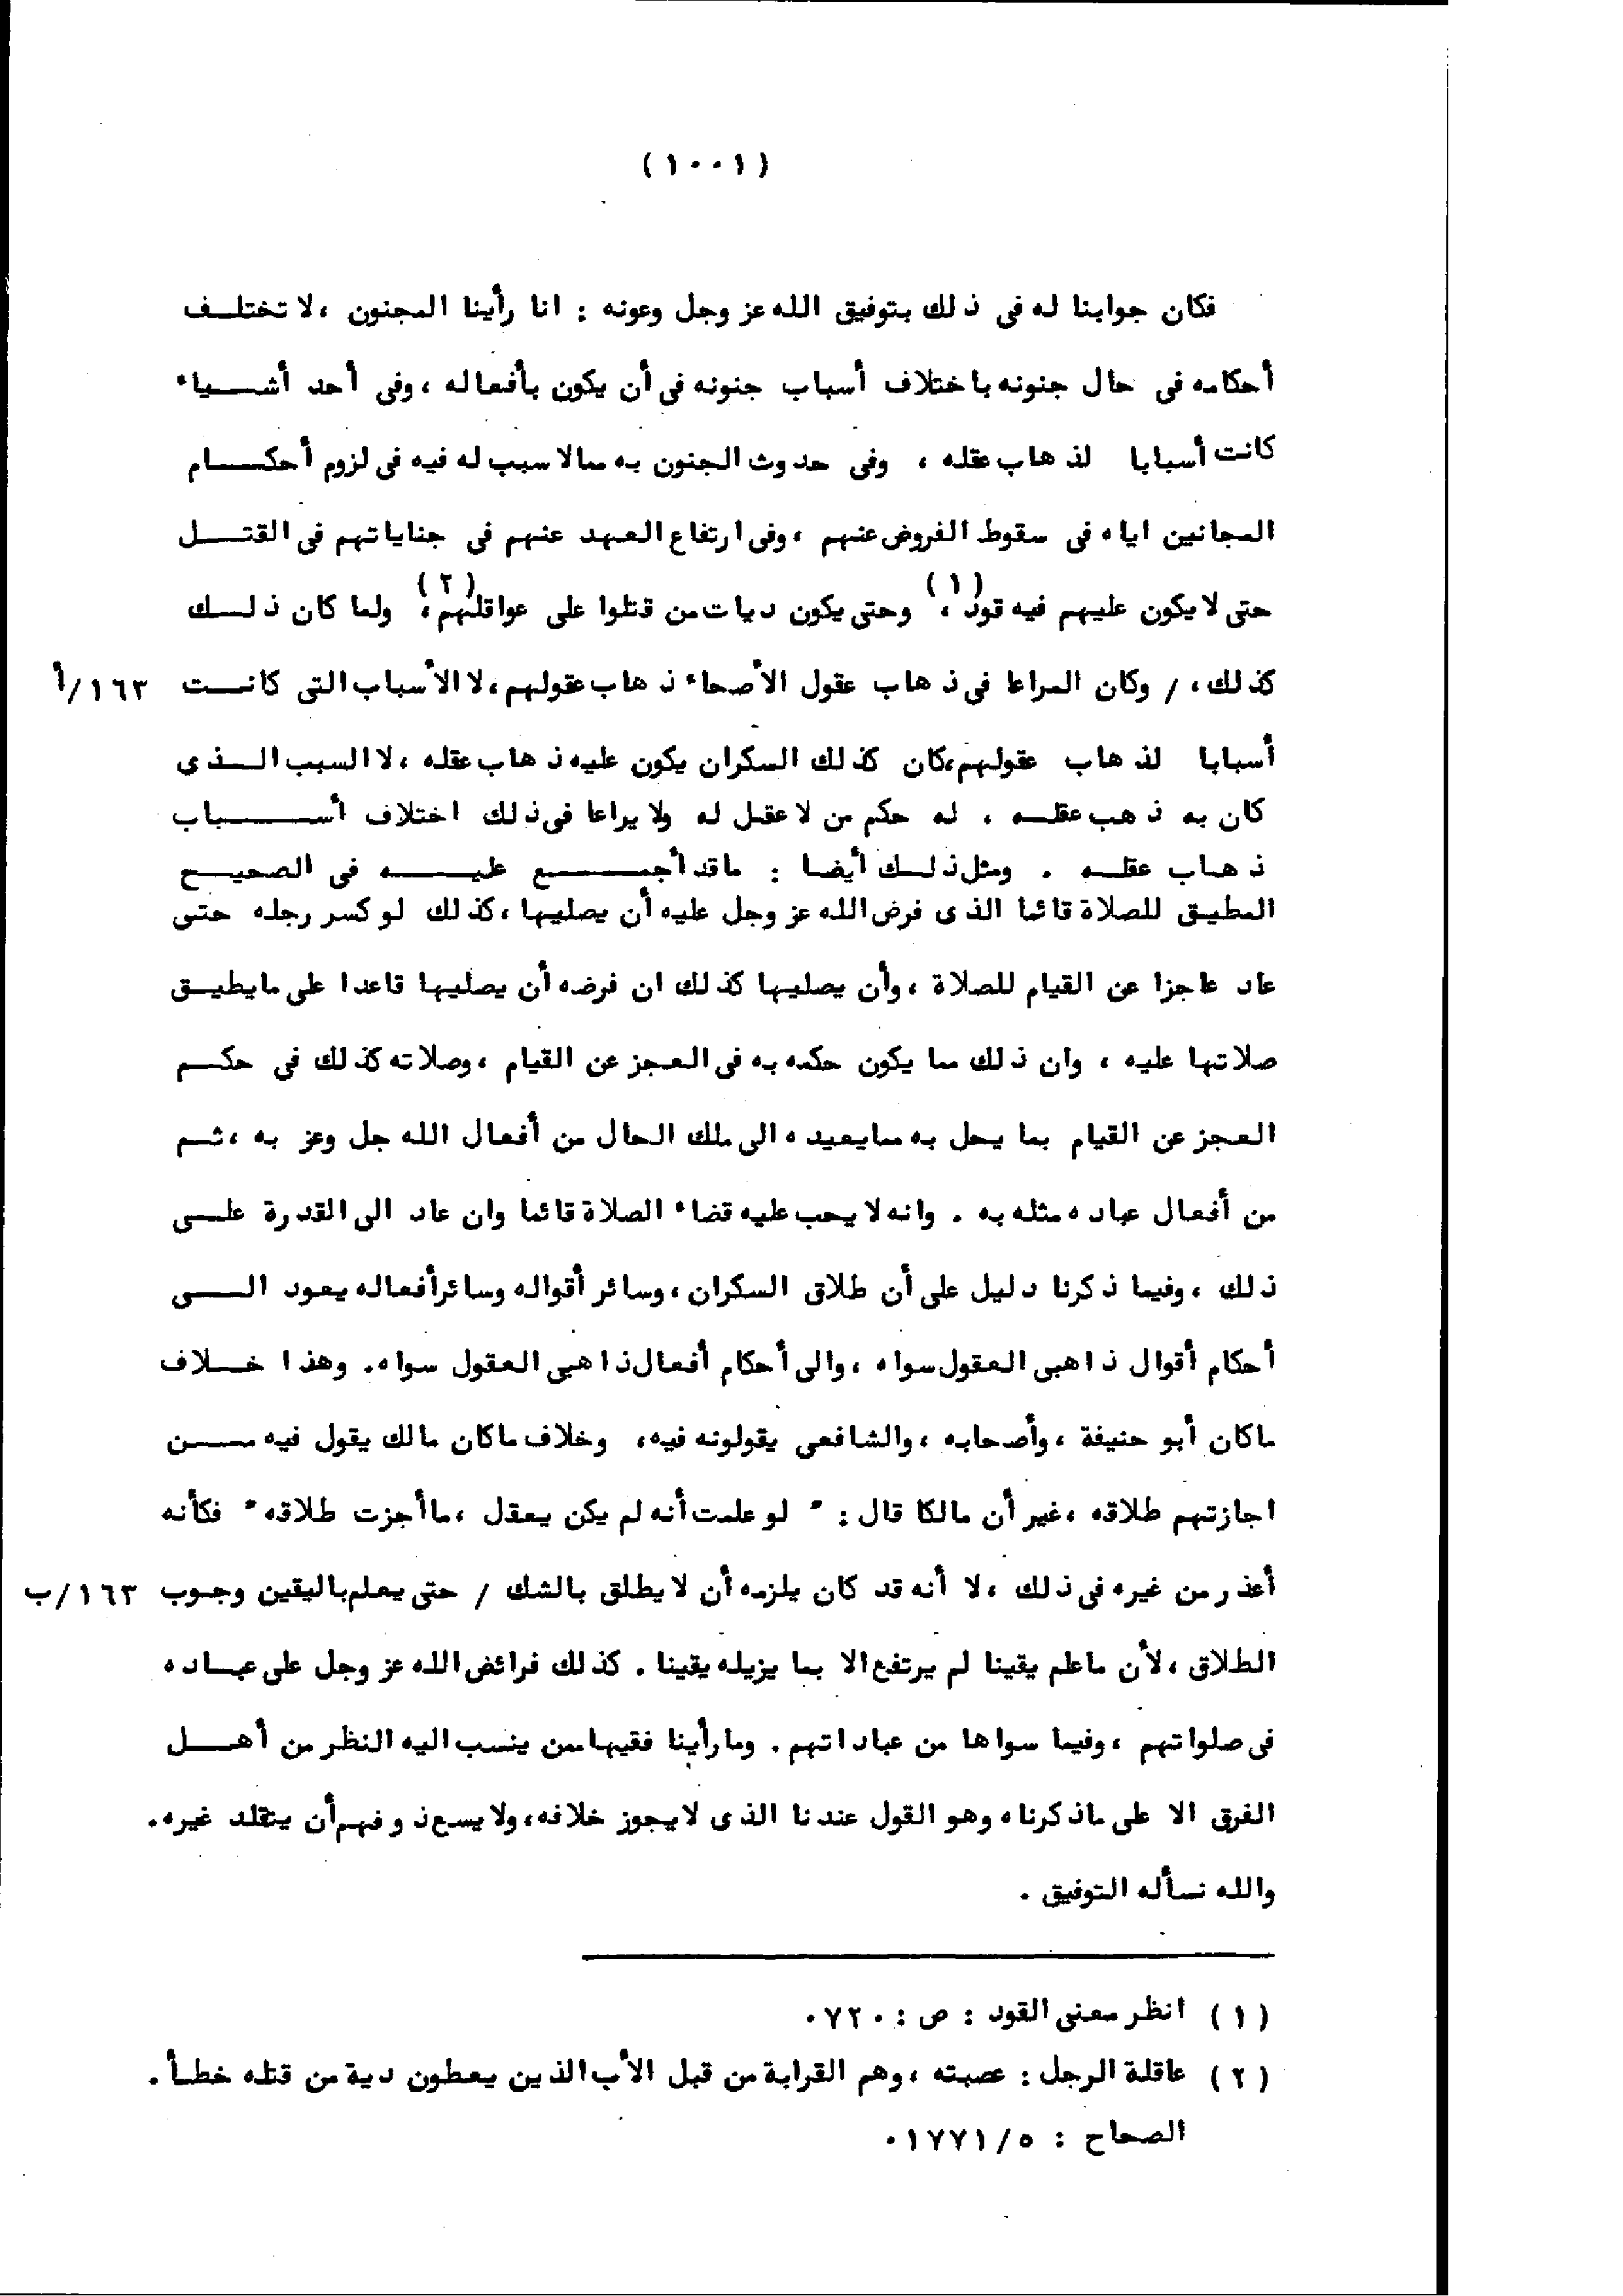 (١٠٠١)
فكان جوابنا له فى ذلك بتوفيق الله عز وجل وعونه : انا رأينا المجنون ، لا تختلف
أحكامه فى حال جنونه باختلاف أسباب جنونه فى أن يكون بأفعاله ، وفى أحد أشياء
كانت أسبابا لذهاب عقله ، وفى حدوث الجنون به مما لا سبب له فيه فى لزوم أحكام
المجانين اياه فى سقوط الفروض عنهم ، وفى ارتفاع العهد عنهم فى جناياتهم فى القتل
حتى لا يكون عليهم فيه قود (١)، وحتى يكون ديات من قتلوا على عواقلهم (٢)، ولما كان ذلك
كذلك ، / وكان المراعا فى ذهاب عقول الأصحاء ذهاب عقولهم ، لا الأسباب التى كانت ١٦٣/أ
أسبابا لذهاب عقولهم ، كان كذلك السكران يكون عليه ذهاب عقله ، لا السبب الذى
كان به ذهب عقله ، له حكم من لا عقل له ولا يراعا فى ذلك اختلاف أسباب
ذهاب عقله . ومثل ذلك أيضا : ما قد أجمع عليه فى الصحيح
المطيق للصلاة قائما الذى فرض الله عز وجل عليه أن يصليها ، كذلك لو كسر رجله حتى
عاد عاجزا عن القيام للصلاة ، وأن يصليها كذلك ان فرضه أن يصليها قاعدا على ما يطيق
صلاتها عليه ، وان ذلك مما يكون حكمه به فى العجز عن القيام ، وصلاته كذلك فى حكم
العجز عن القيام بما يحل به مما يعيده الى ملك الحال من أفعال الله جل وعز به ، ثم
من أفعال عباده مثله به . وانه لا يحب عليه قضاء الصلاة قائما وان عاد الى القدرة على
ذلك ، وفيما ذكرنا دليل على أن طلاق السكران ، وسائر أقواله وسائر أفعاله يعود الى
أحكام أقوال ذاهبى العقول سواه ، والى أحكام أفعال ذاهبى العقول سواه. وهذا خلاف
ماكان أبو حنيفة ، وأصحابه ، والشافعى يقولونه فيه ، وخلاف ماكان مالك يقول فيه من
اجازتهم طلاقه ، غير أن مالكا قال : " لو علمت أنه لم يكن يعقل ، ما أجزت طلاقه " فكأنه
أعذر من غيره فى ذلك ، لا أنه قد كان يلزمه أن لا يطلق بالشك / حتى يعلم باليقين وجوب ١٦٣/ب
الطلاق ، لأن ماعلم يقينا لم يرتفع الا بما يزيله يقينا . كذلك فرائض الله عز وجل على عباده
فى صلواتهم ، وفيما سواها من عباداتهم . وما رأينا فقيها ممن ينسب اليه النظر من أهل
الفرق الا على ماذكرناه وهو القول عندنا الذى لا يجوز خلافه ، ولا يسع ذو فهم أن يتقلد غيره.
والله نسأله التوفيق .
(١) انظر معنى القود : ص : ٧٢٠.
(٢) عاقلة الرجل : عصبته ، وهم القرابة من قبل الأب الذين يعطون دية من قتله خطأ .
الصحاح : ١٧٧١/٥.